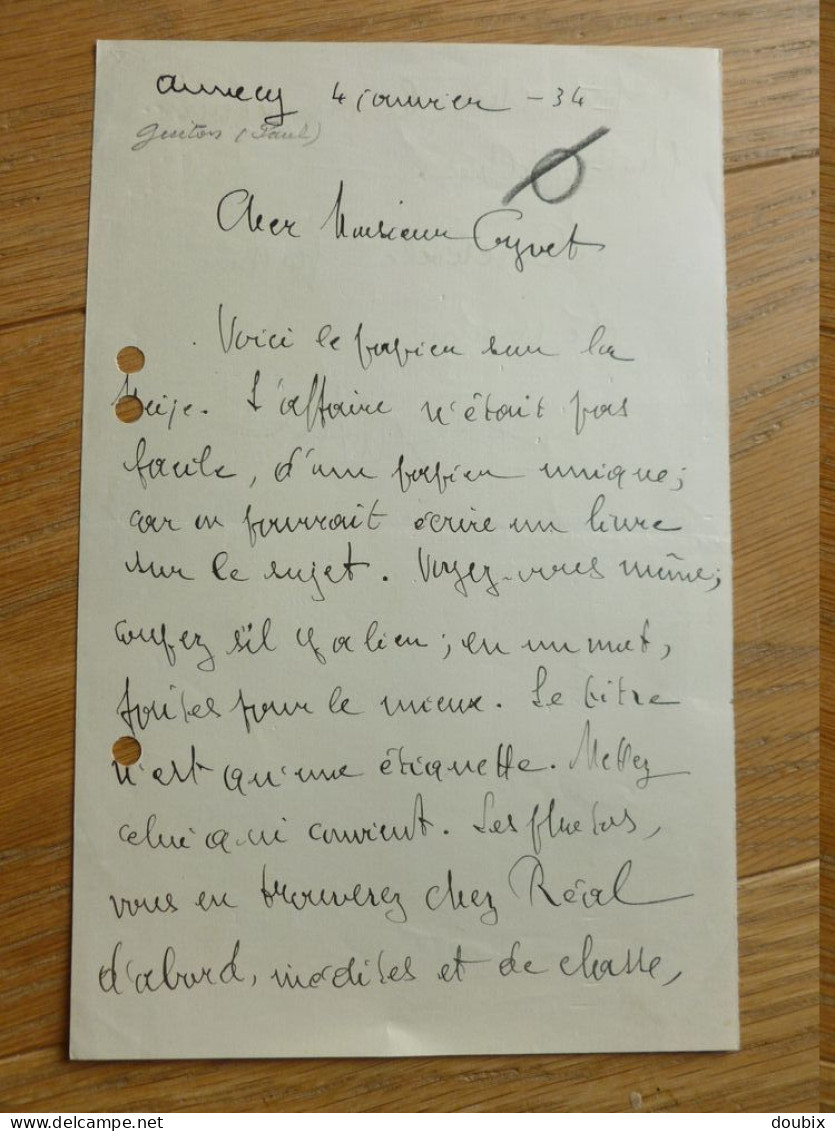 Annecy 4 janvier - 34
Guiton (Paul)
Cher Monsieur Coyvet
Voici le papier sur la
Meije. L'affaire n'était pas
facile, d'un papier unique;
car on pourrait écrire un livre
sur le sujet. Voyez-vous même;
coupez s'il y a lieu; en un mot,
faites pour le mieux. Le titre
n'est qu'une étiquette. Mettez
celui qui convient. Les photos,
vous en trouverez chez Réal
d'abord, inédites et de classe,
doubix